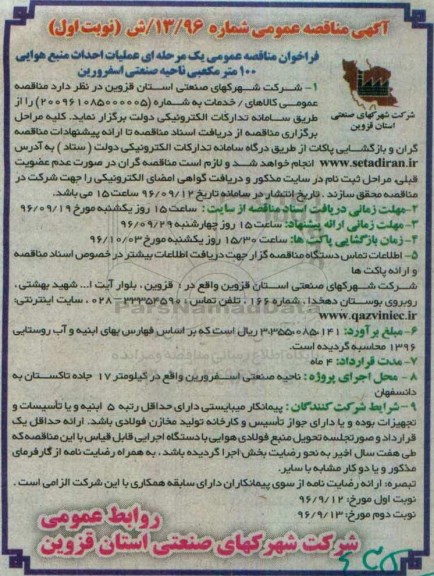 آگهی مناقصه عمومی شماره ۱۳/۹۶/ش (نوبت اول)
فراخوان مناقصه عمومی یک مرحله ای عملیات احداث منبع هوایی
۱۰۰ متر مکعبی ناحیه صنعتی اسفرورین
شرکت شهرکهای صنعتی
استان قزوین
۱- شرکت شهرکهای صنعتی استان قزوین در نظر دارد مناقصه
عمومی کالاهای / خدمات به شماره (۲۰۰۹۶۱۰۸۵۰۰۰۰۰۵) را از
طریق سامانه تدارکات الکترونیکی دولت برگزار نماید. کلیه مراحل
برگزاری مناقصه از دریافت اسناد مناقصه تا ارائه پیشنهادات مناقصه
گران و بازگشایی پاکات از طریق درگاه سامانه تدارکات الکترونیکی دولت ( ستاد ) به آدرس
www.setadiran.ir انجام خواهد شد و لازم است مناقصه گران در صورت عدم عضویت
قبلی، مراحل ثبت نام در سایت مذکور و دریافت گواهی امضای الکترونیکی را جهت شرکت در
مناقصه محقق سازند. تاریخ انتشار در سامانه تاریخ ۹۶/۰۹/۱۲ ساعت ۱۵ می باشد.
۲-مهلت زمانی دریافت اسناد مناقصه از سایت : ساعت ۱۵ روز یکشنبه مورخ ۹۶/۰۹/۱۹
۳- مهلت زمانی ارائه پیشنهاد: ساعت ۱۵ روز چهارشنبه ۹۶/۰۹/۲۹
۴- زمان بازگشایی پاکت ها: ساعت ۱۵/۳۰ روز یکشنبه مورخ ۹۶/۱۰/۰۳
۵- اطلاعات تماس دستگاه مناقصه گزار جهت دریافت اطلاعات بیشتر در خصوص اسناد مناقصه
و ارائه پاکت ها
شرکت شهرکهای صنعتی استان قزوین واقع در : قزوین ، بلوار آیت ا... شهید بهشتی ،
روبروی بوستان دهخدا ، شماره ۱۶۶ ، تلفن تماس : ۳۳۳۵۴۵۹۰-۰۲۸ ، سایت اینترنتی:
www.qazviniec.ir
۶- مبلغ برآورد: ۳،۳۵۵،۰۸۵،۱۴۱ ریال است که بر اساس فهارس بهای ابنیه و آب روستایی
۱۳۹۶ محاسبه گردیده است.
۷- مدت قرارداد: ۴ ماه
۸- محل اجرای پروژه : ناحیه صنعتی اسفرورین واقع در کیلومتر ۱۷ جاده تاکستان به
دانسفهان
۹- شرایط شرکت کنندگان : پیمانکار میبایستی دارای حداقل رتبه ۵ ابنیه و یا تأسیسات و
تجهیزات بوده و یا دارای جواز تأسیس و کارخانه تولید مخازن فولادی باشد. ارائه حداقل یک
قرارداد و صورتجلسه تحویل منبع فولادی هوایی با دستگاه اجرایی قابل قیاس با این مناقصه که
طی هفت سال اخیر به نحو رضایت بخش اجرا گردیده باشد. به همراه رضایت نامه از کارفرمای
مذکور و یا دو کار مشابه با سایر.
تبصره: ارائه رضایت نامه از سوی پیمانکاران دارای سابقه همکاری با این شرکت الزامی است .
نوبت اول مورخ: ۹۶/۹/۱۲
نوبت دوم مورخ: ۹۶/۹/۱۳
روابط عمومی
شرکت شهرکهای صنعتی استان قزوین